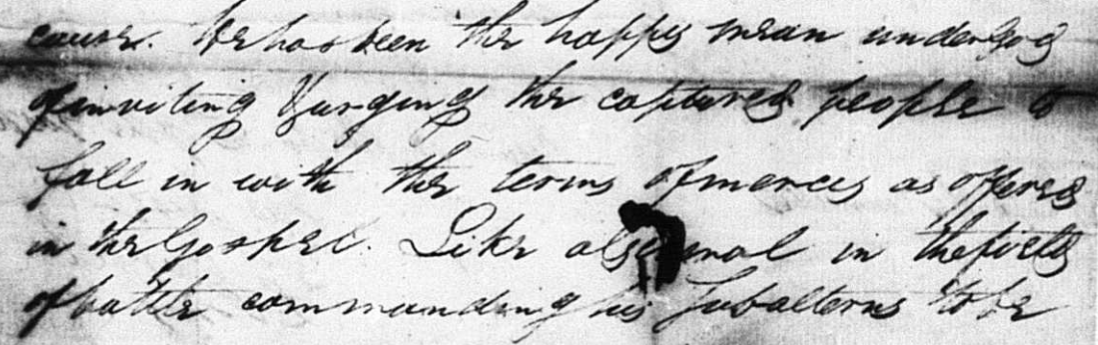 cause. He has been the happy mean under God
of inviting & urging the captured people to
fall in with the terms of mercy as offered
in the Gospel. Like a in the field
of battle commanding his subalterns to be